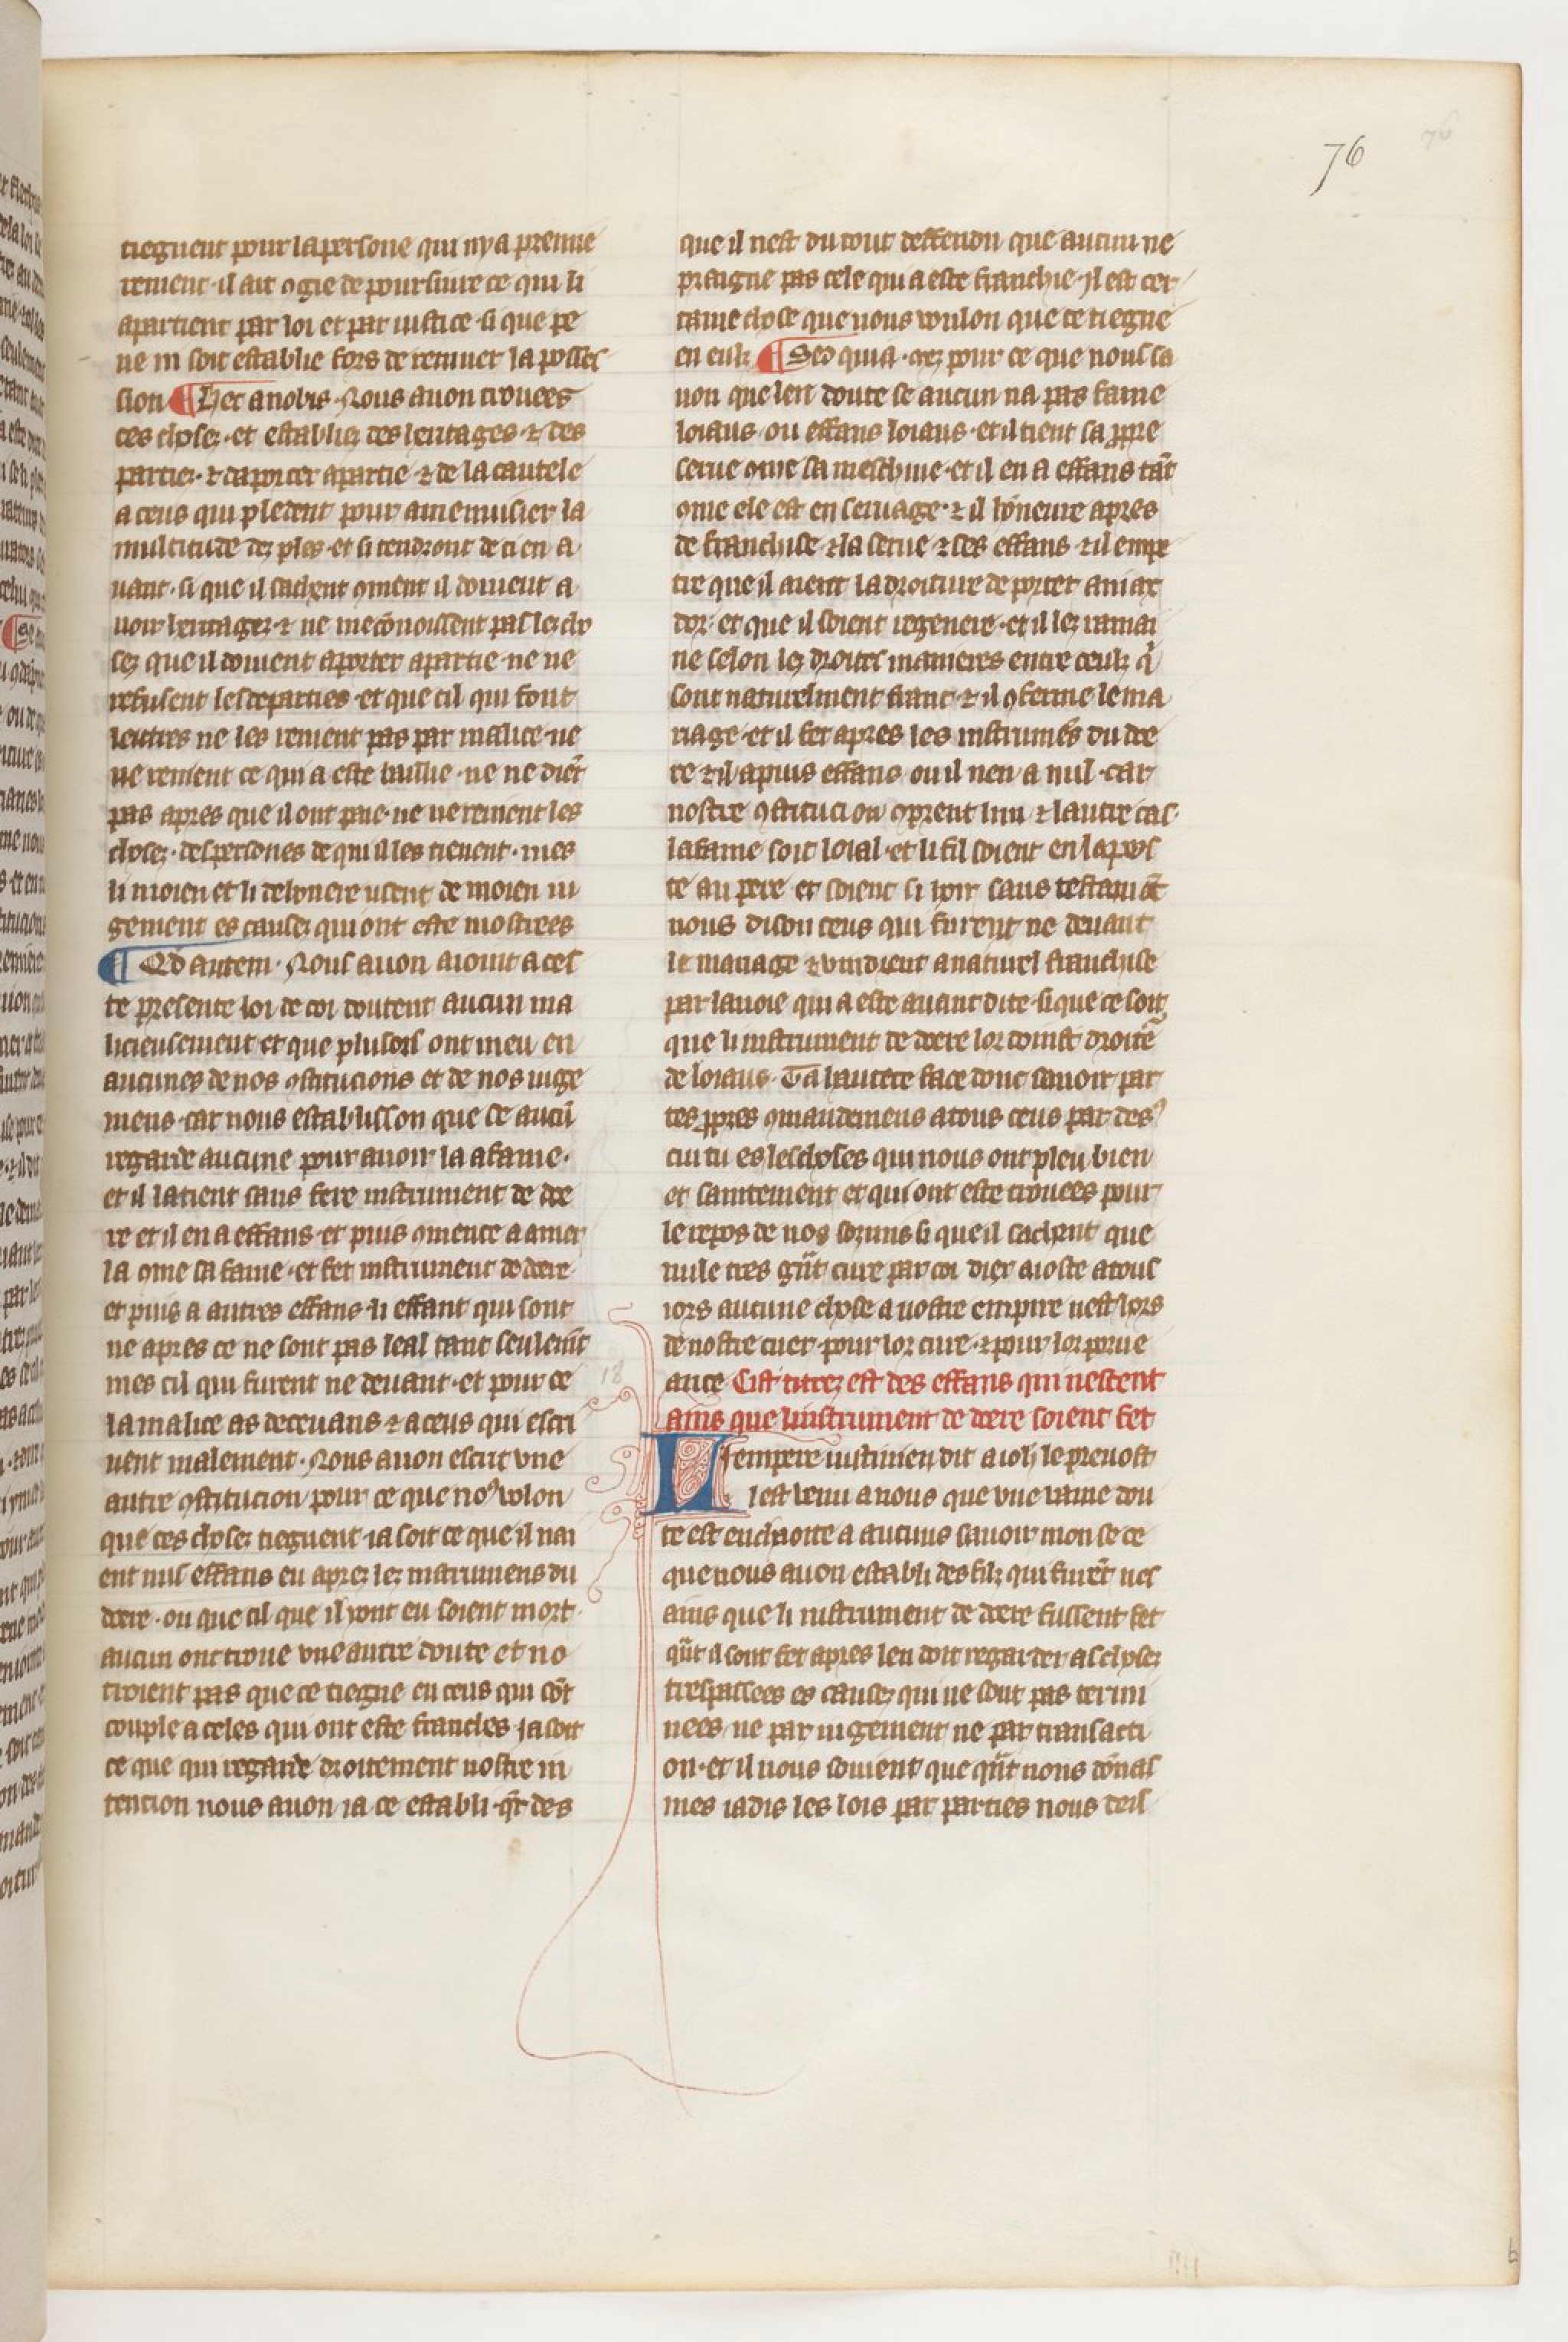 76
tiegnent pour la persone qui ny a premie
rement · il ait ꝯgie de poursiure ce qui li
apartient par loi et par iustice · si que pe
ne ni soit establie fors de retenir la posses
sion ¶ Hec a nobis · Nous auon trouees
ces choses · et establiez des heritages · ⁊ des
parties · ⁊ daporter apartie ⁊ de la cautele
a ceus qui pledent pour amenuisier la
multitude dez ples · et si tendront de ci en a
uant · si que il sachent ꝯment il doiuent a
uoir heritagez ⁊ ne mecōnoissent pas lez cho
sez que il doiuent aporter apartie · ne ne
refusent les departies · et que cil qui font
lettres ne les renient pas par malice · ne
ne renient ce qui a este baillie · ne ne diēt
pas apres que il ont paie · ne ne renient les
chosez · des persones de qui il les tienent · mes
li moien et li deliuere usent de moien iu
gement es causez qui ont este mostrees
¶ Qd autem · Nous auon aiouit a ces
te presente loi de coi doutent aucun ma
licieusement et que plusors ont meu en
aucunes de nos ꝯstitucions et de nos iuge
mens · car nous establisson que se aucū
regarde aucune pour auoir la a fame ·
et il la tient sans fere instrument de doe
re et il en a effans · et puis ꝯmence a amer
la ꝯme sa fame · et fet instrument de doere
et puis a autres effans · li effant qui sont
ne apres ce ne sont pas leal tant seulemt̄
mes cil qui furent ne deuant · et pour ce
la malice as deceuans ⁊ a ceus qui escri
uent malement · Nous auon escrit vne
autre ꝯstitucion pour ce que noꝰ volon
que ces chosez tiegnent · ia soit ce que il nai
ent nus effans eu aprez lez instrumens du
doere · ou que cil que il ront eu soient mort ·
aucun ont troue vne autre doute et no
troient pas que ce tiegne en ceus qui sōt
couple a celes qui ont este franches · ja soit
ce que qui regarde droitement nostre in
tencion nous auon ia ce establi · qr̄ des
que il nest du tout deffendu que aucun ne
praigne pas cele qui a este franchie · Il est cer
taine chose que nous voulon que ce tiegne
en eulz ¶ Sed quia · mez pour ce que nous sa
uon que len doute se aucun na pas fame
loiaus · ou effans loiaus · et il tient sa ꝓpre
serue ꝯme sa meschine · et il en a effans tāt
ꝯme ele est en seruage · ⁊ il hōneure apres
de franchise ⁊ la serue ⁊ ses effans ⁊ il empe
tre que il aient la droiture de porter aniax
dor · et que il soient regenere · et il lez ramai
ne selon lez droites manieres entre ceulz q̄
sont naturelment franc · ⁊ il ꝯferme le ma
riage · et il fet apres les instrumēs du doe
re ⁊ il a puis effans · ou il nen a nul · car
nostre ꝯstitucion ꝯprent lun ⁊ lautre cas ·
la fame soit loial · et li fil soient en la poes
te au pere et soient si hoir sans testamēt
nous dison ceus qui furent ne deuant
le mariage ⁊ vindrent a naturel franchise
par la uoie qui a este auant dite · si que ce soit
que li instrument de doere lor doinst droitē
de loiaus · Ta hautece face donc sauoir par
tes ꝓpres ꝯmandemens a tous ceus par desꝰ
cui tu es les choses qui nous ont pleu bien
et saintement et qui ont este trouees pour
le repos de nos sozmis si que il sachent que
nule tres gr̄t cure par coi diex aioste a tous
iors aucune chose a nostre empire nest hors
de nostre cuer · pour lor cure · ⁊ pour lor porue
ance Cist titrez est des effans qui nessent
ains que linstrument de doere soient fet
18
Lempere iustinien dit a ioh̄ le preuost
Il est venu a nous que vne vaine dou
te est encharite a aucuns sauoir mon se ce
que nous auon establi des filz qui furēt nes
ains que li instrument de doere fussent fet
qr̄t il sont fet apres len doit regarder as chosez
trespassees es causez qui ne sont pas termi
nees · ne par iugement ne par transacti
on · et il nous souient que qr̄t nous dōnas
mes iadis les lois par parties nous deis